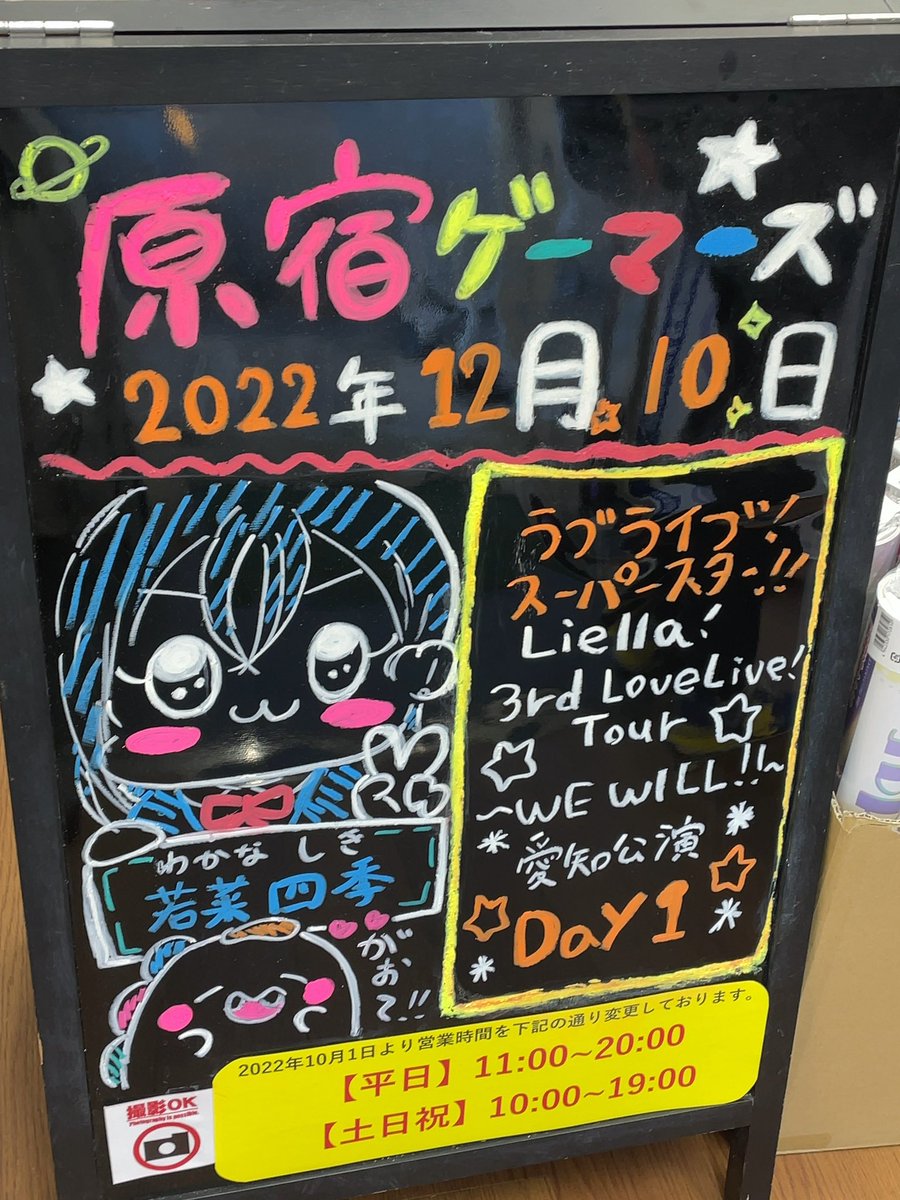 原宿ゲーマーズ
2022年12月10日
ラブライブ!
スーパースター!!
Liella!
3rd LoveLive!
Tour
~WE WILL!!~
愛知公演
Day1
わかな しき
若菜 四季
がおー!!
2022年10月1日より営業時間を下記の通り変更しております。
【平日】11:00~20:00
【土日祝】10:00~19:00
撮影OK
Photography is possible.